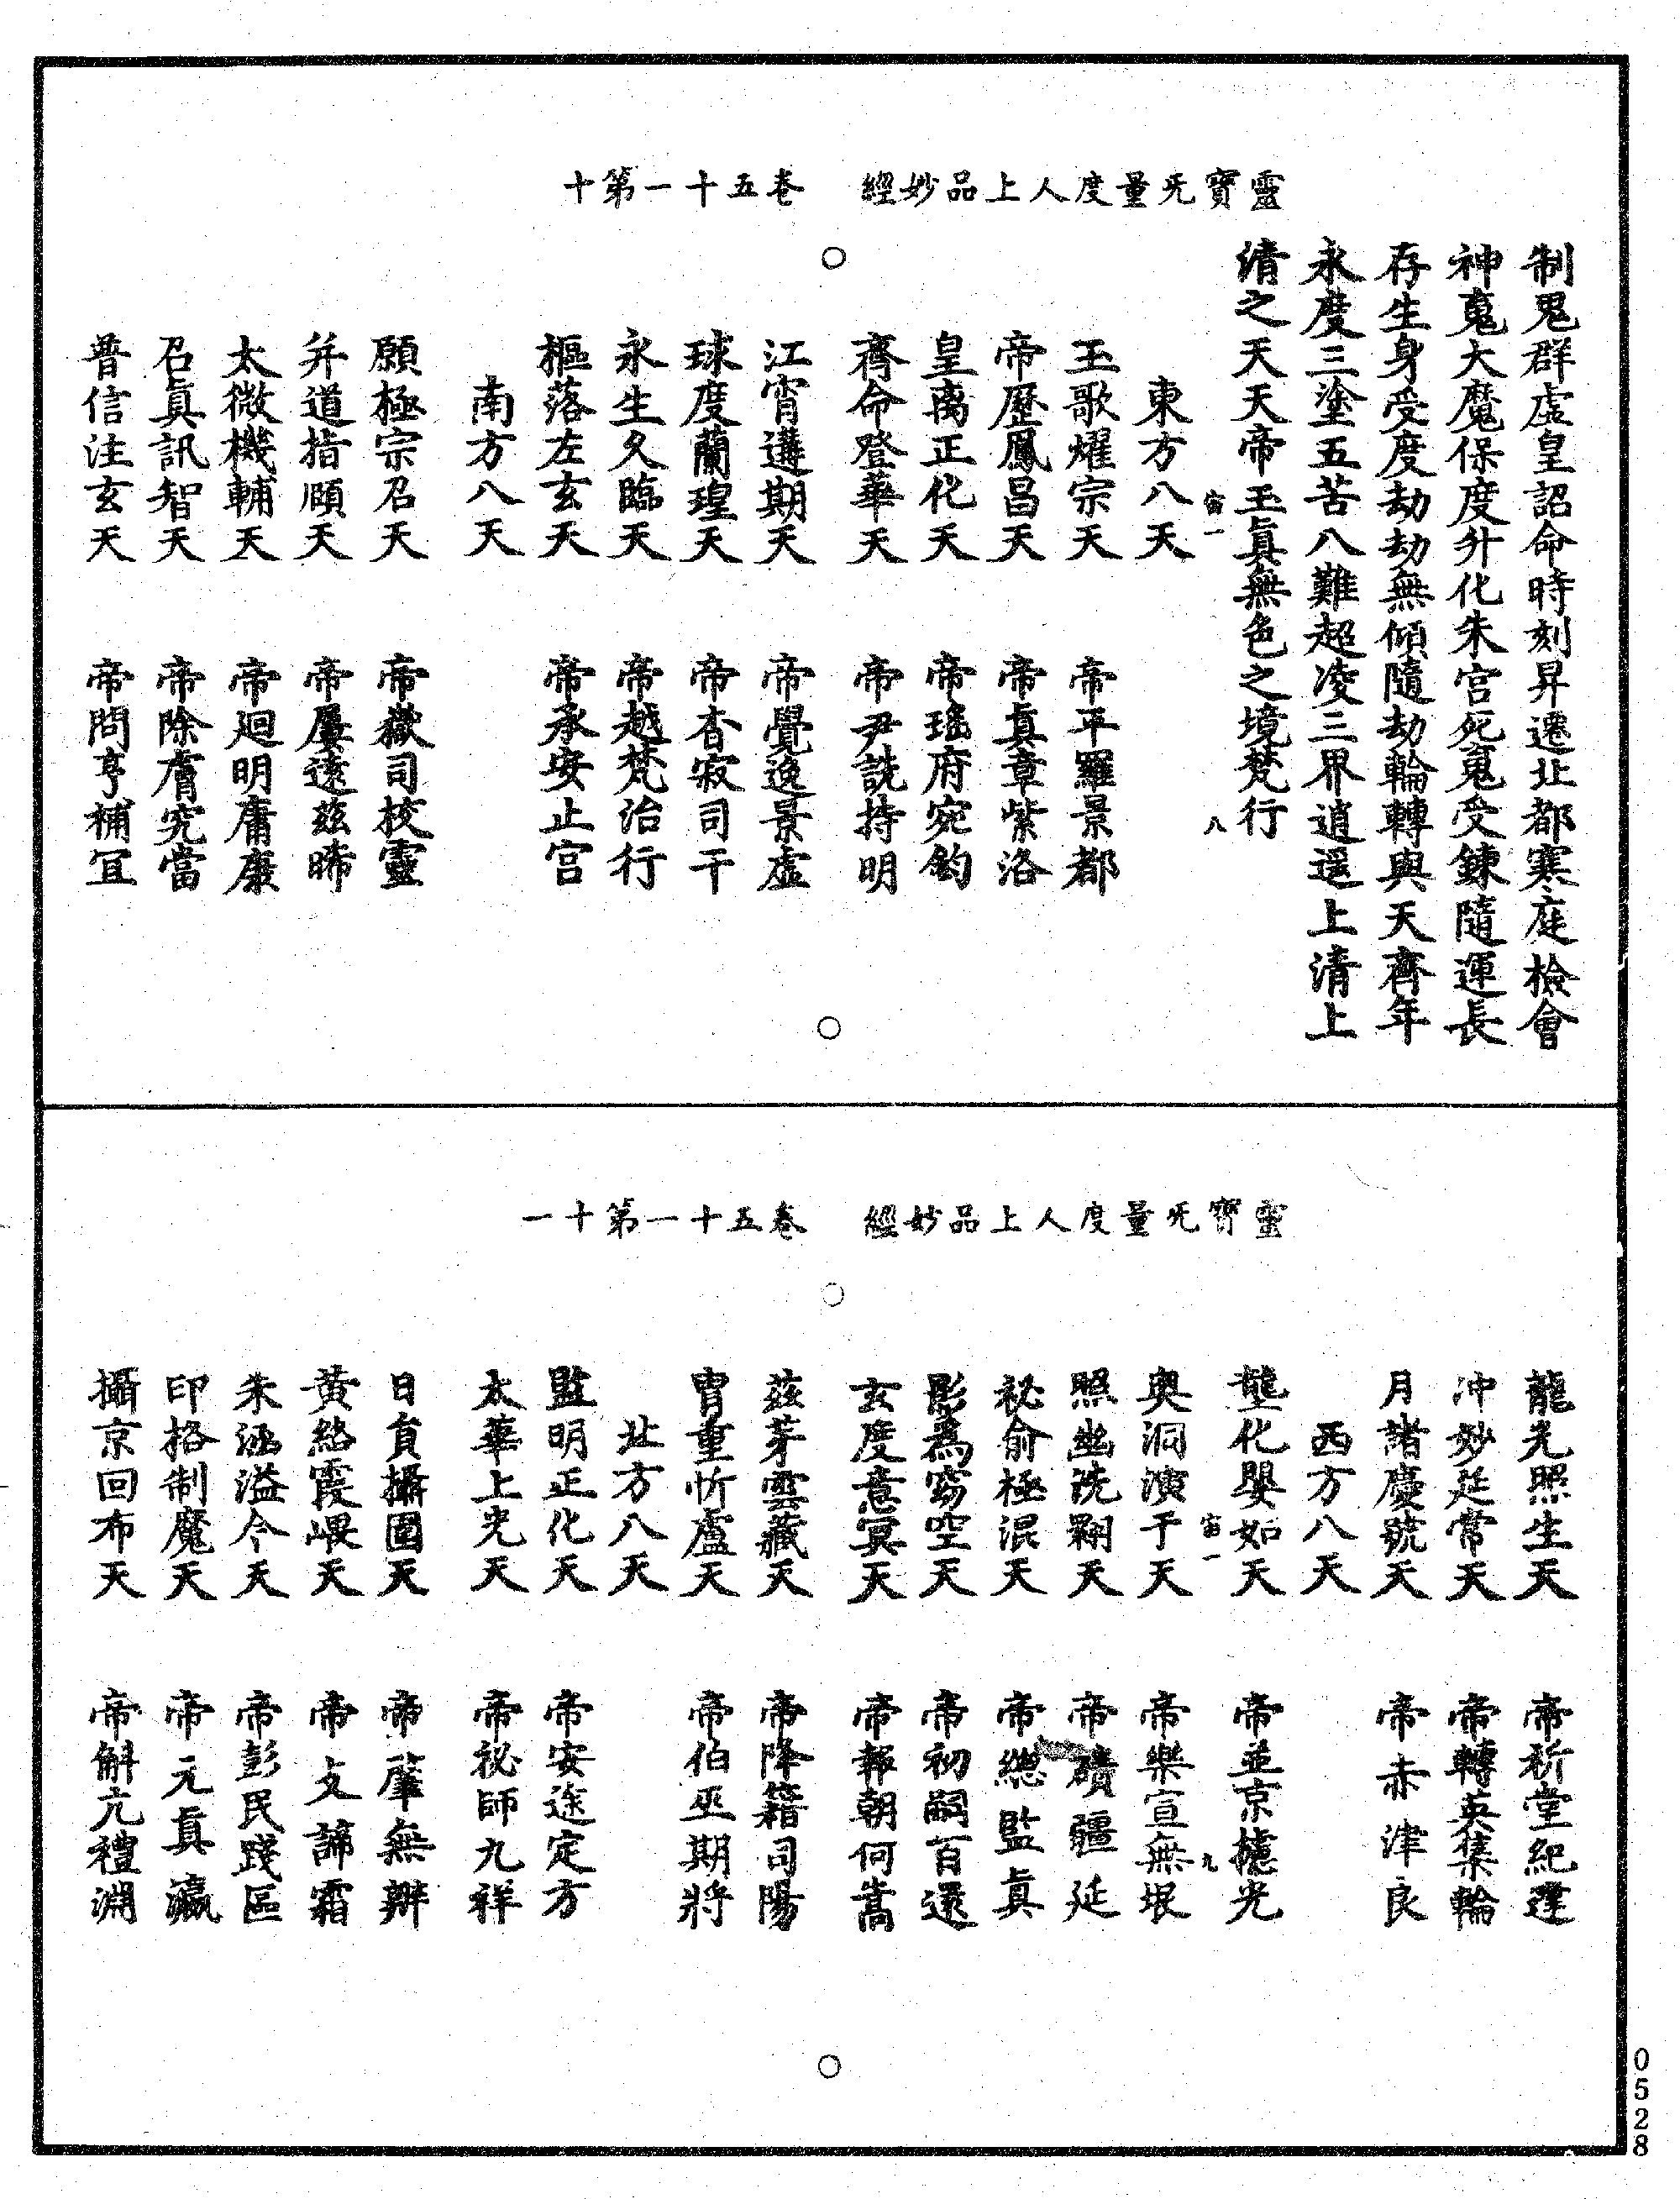 靈寶旡量度人上品妙經　卷五十一第十
制鬼群虛皇詔命時刻昇遷北都寒庭檢會
神䰟大魔保度升化朱宮死䰟受鍊隨運長
存生身受度劫劫無傾隨劫輪轉與天齊年
永度三塗五苦八難超凌三界逍遥上清上
清之天天帝玉眞無色之境梵行
宙一　八
東方八天
玉歌燿宗天　帝平羅景都
帝歷鳳昌天　帝眞章紫洛
皇离正化天　帝瑤府宛鈞
齊命登華天　帝尹詵持明
江宵遘期天　帝覺逸景虛
球度蘭瑝天　帝杳寂司干
永生久臨天　帝越梵治行
樞落左玄天　帝承安止宮
南方八天
願極宗召天　帝嶽司校靈
并道指頤天　帝屢遠兹晞
太微機輔天　帝廻明庸康
召眞訊智天　帝除膺究當
普信注玄天　帝問亨補冝
靈寶旡量度人上品妙經　卷五十一第十一
龍光照生天　帝祈堂紀達
沖妙延常天　帝轉英集輪
月諸慶號天　帝赤津良
西方八天
壟化嬰如天　帝並京摅光
宙一　九
奥洞演于天　帝樂宣無垠
照幽洗翾天　帝磧疆延
祕俞極混天　帝總監眞
影為窈空天　帝初嗣百還
玄度意冥天　帝報朝何嵩
茲芽雲藏天　帝降籍司陽
胄重忻盧天　帝伯巫期將
北方八天
監明正化天　帝安途定方
太華上光天　帝祕師九祥
日負攝圖天　帝肇無辦
黃絡霞㟪天　帝攴諦霜
朱涵溢令天　帝彭民踐區
印格制魔天　帝元眞瀛
攝京回布天　帝斛亢禮淵
0528